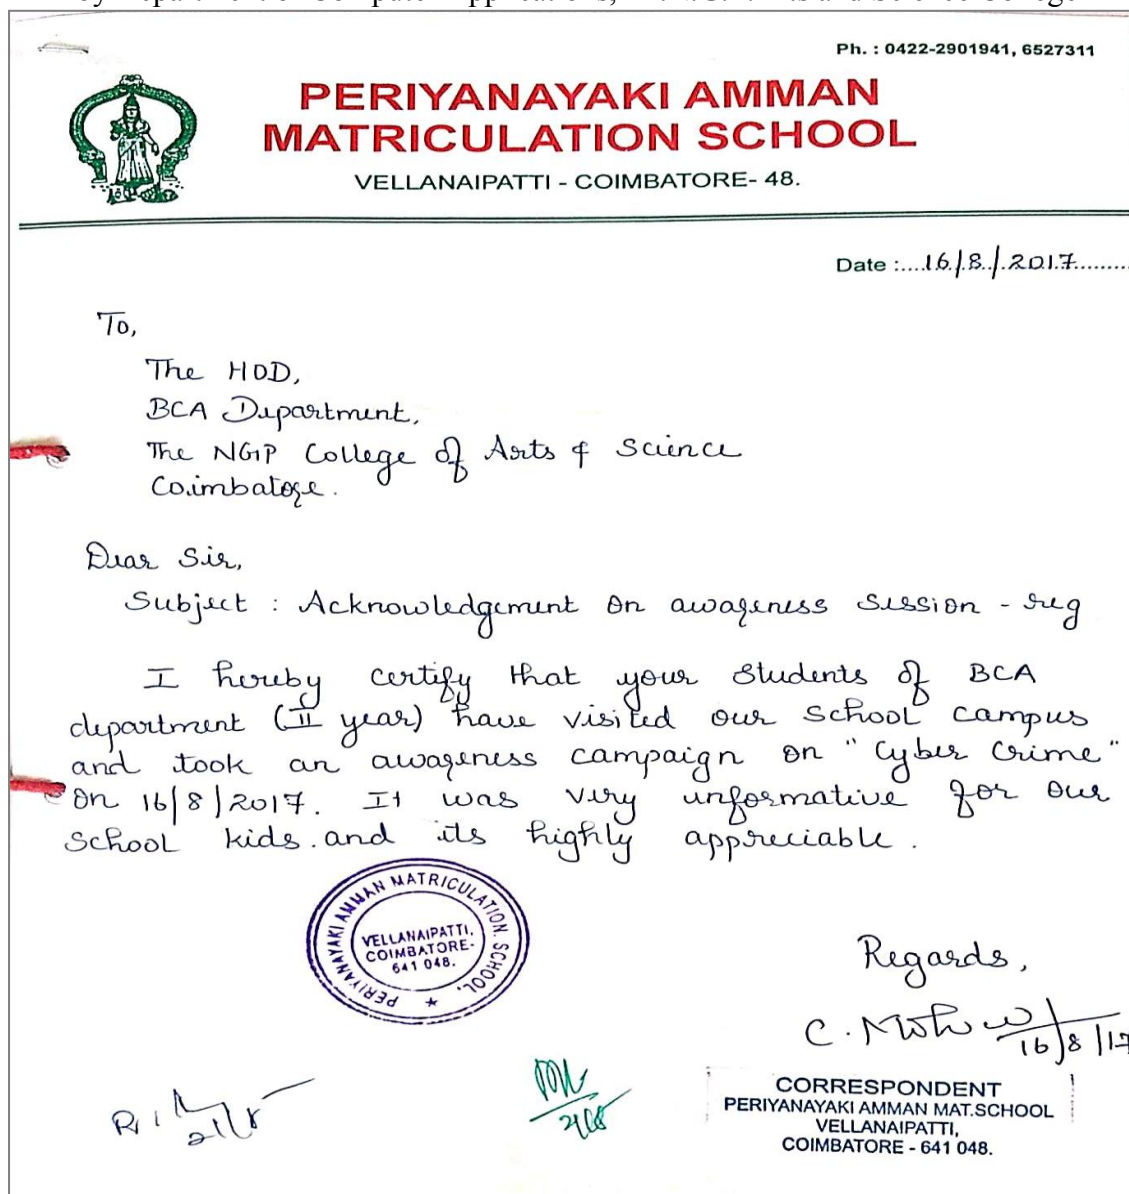 Ph. : 0422-2901941, 6527311
PERIYANAYAKI AMMAN
MATRICULATION SCHOOL
VELLANAIPATTI - COIMBATORE- 48.
Date :....16/8/2017........
To,
The HOD,
BCA Department,
The NGP College of Arts & Science
Coimbatore.
Dear Sir,
Subject : Acknowledgement on awareness session - reg
I hereby certify that your students of BCA
department (II year) have visited our school campus
and took an awareness campaign on "Cyber Crime"
on 16/8/2017. It was very informative for our
school kids.and its highly appreciable.
PERIYANAYAKI AMMAN MATRICULATION. SCHOOL,
VELLANAIPATTI,
COIMBATORE-
641 048.
Regards,
C.
16/8/17
CORRESPONDENT
PERIYANAYAKI AMMAN MAT.SCHOOL
VELLANAIPATTI,
COIMBATORE - 641 048.